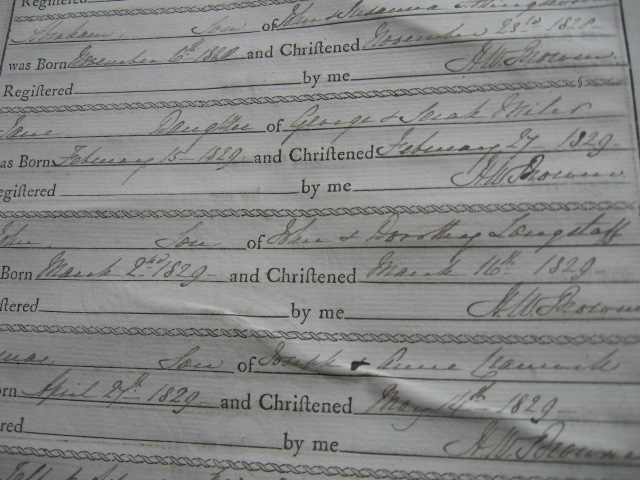 Registered
Abraham Son of John & Susanna
was Born November 6th 1828 and Chriſtened November 23rd 1828
Registered by me H W Brown
Jane Daughter of George & Sarah Miler
as Born February 15 1829 and Chriſtened February 27 1829
egiſtered by me H W Brown
John Son of John & Dorothy Langstaff
Born March 2nd 1829 and Chriſtened March 16th 1829
ſtered by me H W Brown
omas Son of Joseph & Anne
orn April 27th 1829 and Chriſtened May 14th 1829
ered by me H W Brown